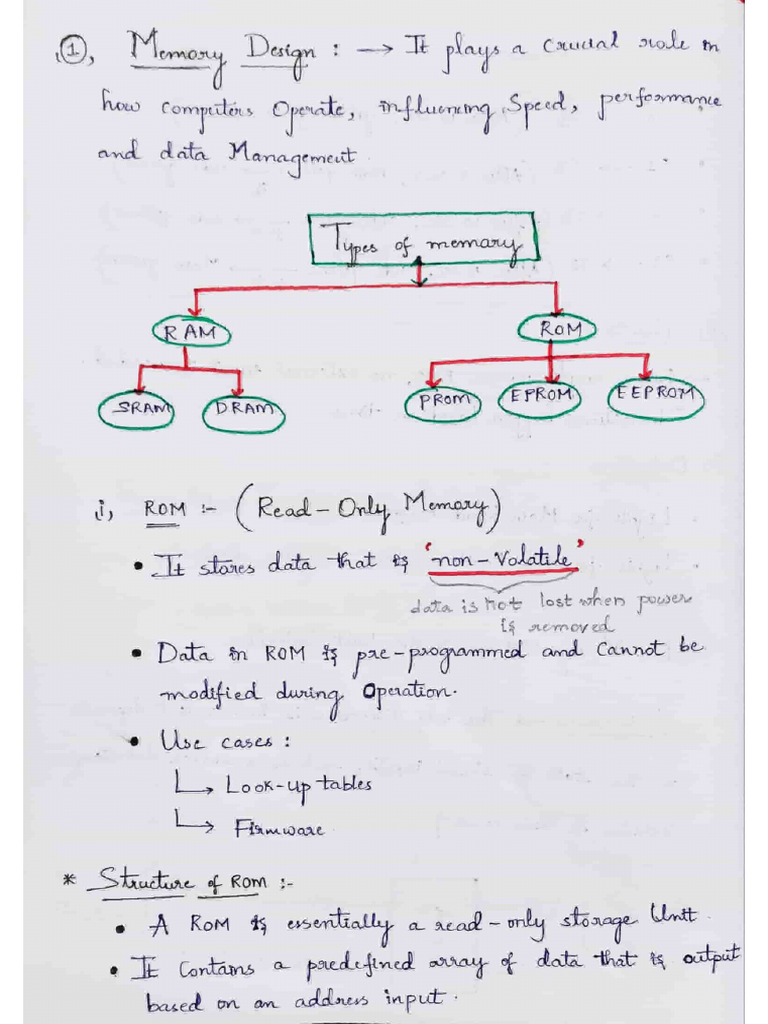 1, Memory Design : → It plays a crucial role in
how computers Operate, influencing Speed, performance
and data Management.
Types of memory
RAM ROM
SRAM DRAM PROM EPROM EEPROM
i, ROM :- (Read-Only Memory)
• It stores data that is 'non-Volatile'
data is not lost when power
is removed
• Data in ROM is pre-programmed and Cannot be
modified during Operation.
• Use cases :
↳ Look-up tables
↳ Firmware
* Structure of ROM :-
• A ROM is essentially a read-only storage Unit.
• It contains a predefined array of data that is output
based on an address input.